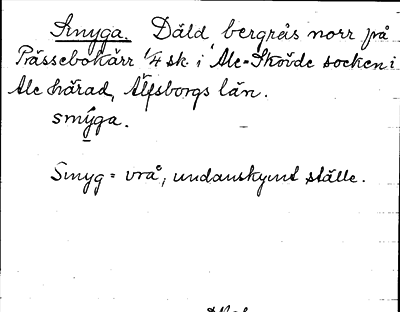 Smyga. Däld i bergsås norr på
Prässebokärr 1/4 sk. i Ale-Skövde socken i
Ale härad, Älfsborgs län.
smy̋ga.
Smyg = vrå, undanskymt ställe.